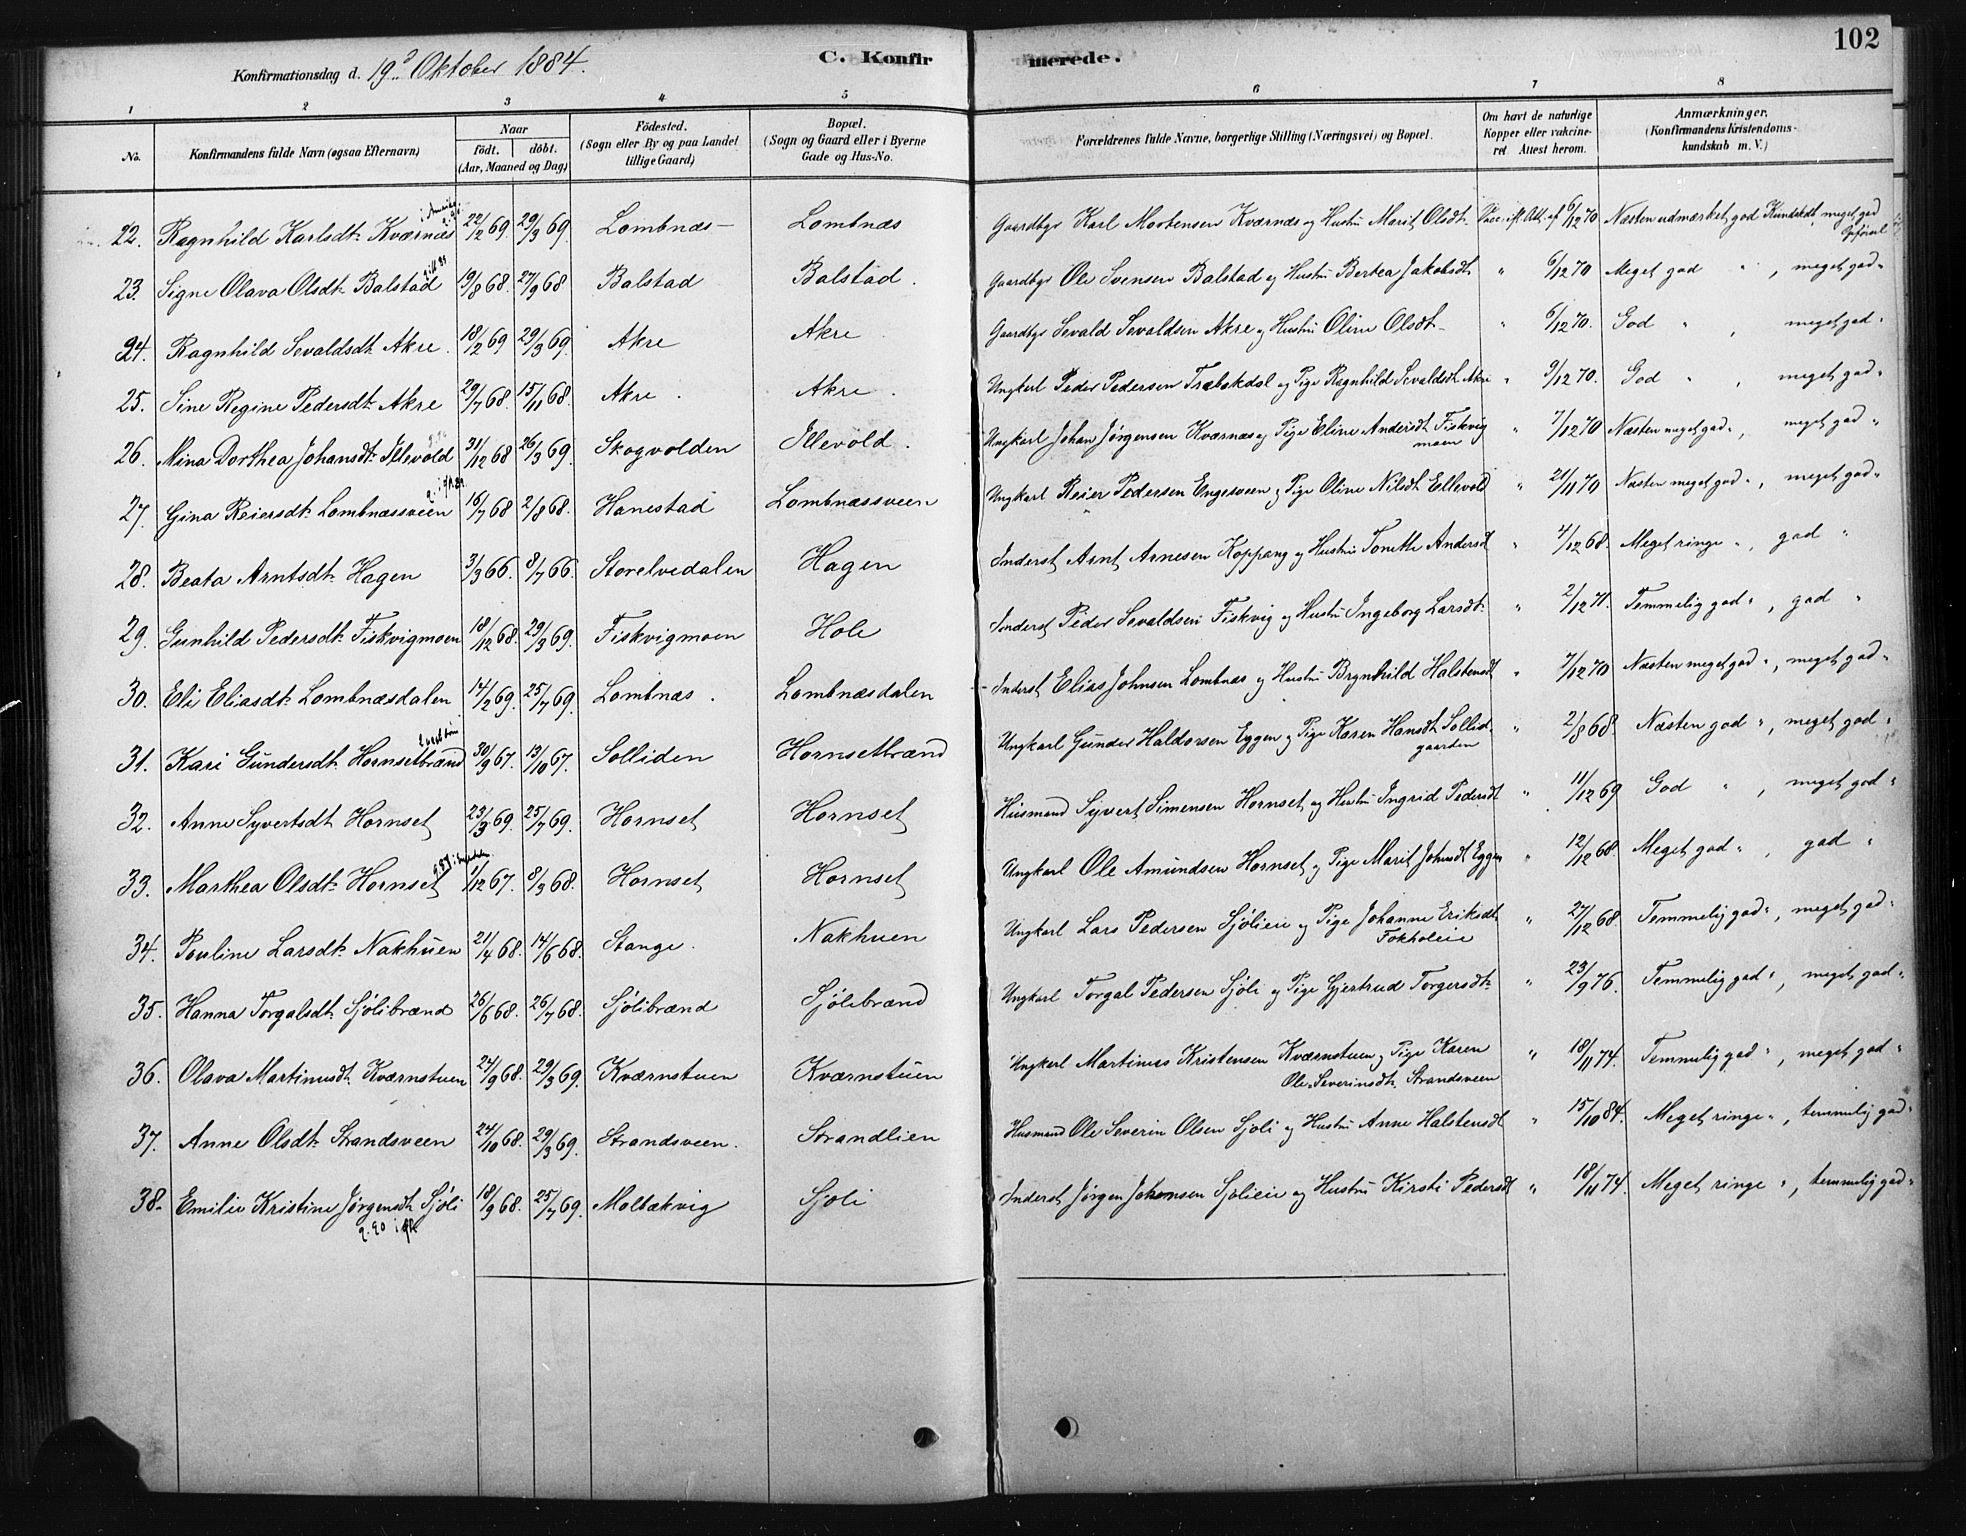 102
Konfirmationsdag d. 19de Oktober 1884.
C. Konfirmerede.
1 2 3 4 5 6 7 8
No. Konfirmandens fulde Navn (ogsaa Efternavn) Naar født. døbt. (Aar, Maaned og Dag) Fødested. (Sogn eller By og paa Landet tillige Gaard) Bopæl. (Sogn og Gaard eller i Byerne Gade og Hus-No. Forældrenes fulde Navne, borgerlige Stilling (Næringsvei) og Bopæl. Om havt de naturlige Kopper eller vakcineret. Attest herom. Anmærkninger. (Konfirmandens Kristendomskundskab m. V.)
22. Ragnhild Karlsdt. Kværnæs 22/2 69 29/3 69. Lombnæs Lombnæs Gaardbgr Karl Mortensen Kværnæs og Hustru Marit Olsdt. Vacc. if. Att. af 6/12 70 Næsten udmærket god Kundskab, meget god Opførsel
23. Signe Olava Olsdt. Balstad 19/8 68. 27/9 68 Balstad Balstad. Gaardbgr Ole Svensen Balstad og Hustru Bertea Jakobsdt. " 6/12 70 Meget god ", meget god "
24. Ragnhild Sevaldsdt. Akre. 18/2 69 29/3 69. Akre Akre Gaardbgr Sevald Sevaldsen Akre og Hustru Oline Olsdt. " 6/12 70. God ", meget god "
25. Sine Regine Pedersdt. Akre 29/7 68. 15/11 68. Akre. Akre. Ungkarl Peder Pedersen Træbakdal og Pige Ragnhild Sevaldsdt. Akre " 9/12 70. God ", meget god "
26. Mina Dorthea Johansdt. Illevold 31/12 68 26/3 69. Skogvolden Illevold. Ungkarl Johan Jørgensen Kværnæs og Pige Eline Andersdt. Fiskvigmoen " 7/12 70 Næsten meget god ", meget god "
27. Gina Reiersdt. Lombnæssveen 16/7 68 2/8 68. Hanestad Lombnæssveen Ungkarl Reier Pedersen Engesveen og Pige Oline Nilsdt. Ellevold " 21/11 70 Næsten meget god ", meget god "
28. Beata Arntsdt. Hagen 3/3 66. 8/7 66. Storelvedalen Hagen Inderst Arnt Arnesen Koppang og Hustru Tonette Andersdt. " 4/12 68. Meget ringe ", god "
29. Gunhild Pedersdt. Fiskvigmoen 18/12 68. 29/3 69. Fiskvigmoen Hole Inderst Peder Sevaldsen Fiskvig og Hustru Ingeborg Larsdt. " 2/12 71. Temmelig god ", god "
30. Eli Eliasdt. Lombnæsdalen 14/2 69. 25/7 69. Lombnæs. Lombnæsdalen Inderst Elias Johnsen Lombnæs og Hustru Brynhild Halstensdt. " 7/12 70 Næsten meget god ", meget god "
31. Kari Gundersdt. Hornsetbrænd 30/9 67. 13/10 67. Solliden Hornsetbrænd Ungkarl Gunder Haldorsen Eggen og Pige Karen Hansdt. Sollidgaarden " 2/8 68. Næsten god ", meget god "
32. Anne Syvertsdt. Hornset 23/3 69. 25/7 69. Hornset Hornset Husmand Syvert Simensen Hornset og Hustru Ingrid Pedersdt. " 11/12 69 God ", meget god "
33. Marthea Olsdt. Hornset 1/12 67. 8/3 68. Hornset Hornset Ungkarl Ole Amundsen Hornset og Pige Marit Johnsdt. Eggen " 12/12 68. Meget god ", god "
34. Pauline Larsdt. Nakhuen 21/4 68. 14/6 68. Stange. Nakhuen Ungkarl Lars Pedersen Sjølieie og Pige Johanne Eriksdt. Fokholeie " 27/12 68. Temmelig god ", meget god "
35. Hanna Torgalsdt. Sjølibrænd 26/6 68. 26/7 68. Sjølibrænd Sjølibrænd Ungkarl Torgal Pedersen Sjøli og Pige Gjertrud Torgersdt. " 23/9 76. Temmelig god ", meget god "
36. Olava Martinusdt. Kværnstuen 24/9 68. 29/3 69. Kværnstuen Kværnstuen Ungkarl Martinus Kristensen Kværnstuen og Pige Karen Ole Severinsdt. Strandsveen " 18/11 74. Temmelig god ", meget god "
37. Anne Olsdt. Strandsveen 24/10 68. 29/3 69. Strandsveen. Strandlien Husmand Ole Severin Olsen Sjøli og Hustru Anne Halstensdt. " 15/10 84. Meget ringe ", temmelig god "
38. Emilie Kristine Jørgensdt. Sjøli 18/9 68. 25/7 69. Molbækvig Sjøli Inderst Jørgen Johansen Sjølieie og Hustru Kirsti Pedersdt. " 18/11 74. Meget ringe ", temmelig god "